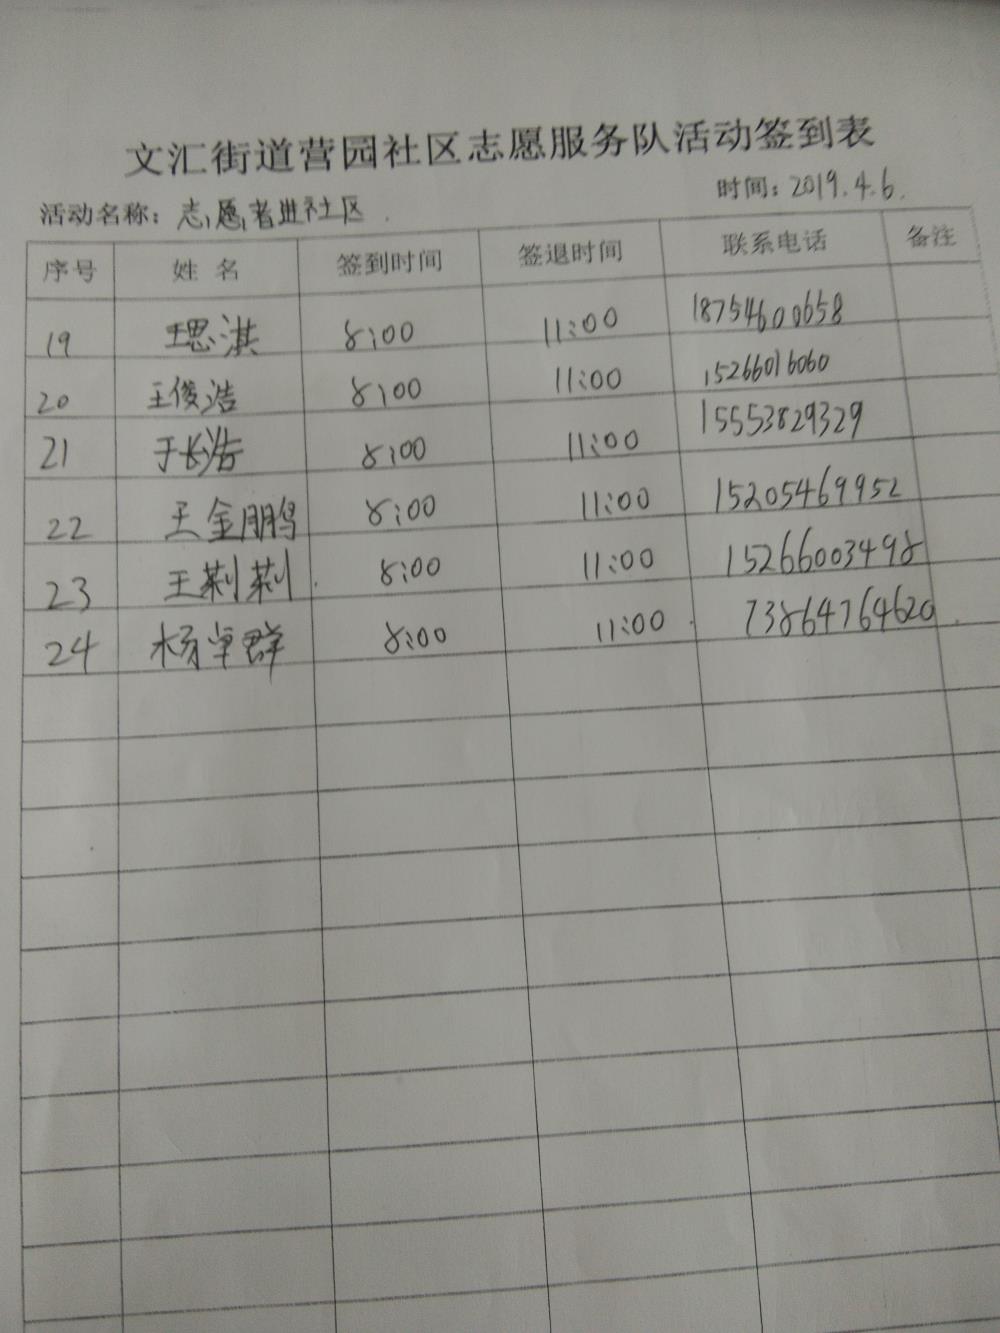 文汇街道营园社区志愿服务队活动签到表
时间：2019.4.6.
活动名称：志愿者进社区.
序号 姓名 签到时间 签退时间 联系电话 备注
19 王思淇 8:00 11:00 18754600658
20 王俊浩 8:00 11:00 15266016060
21 于长浩 8:00 11:00 15553829329
22 王金鹏 8:00 11:00 15205469952
23 王荆荆 8:00 11:00 15266003498
24 杨卓群 8:00 11:00 13864764620